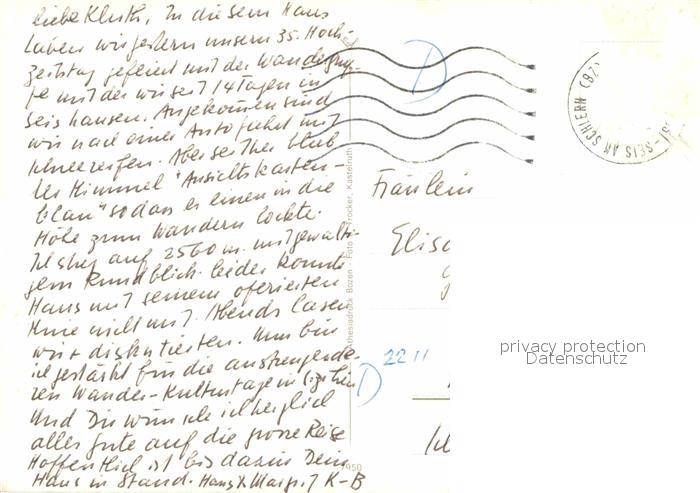 liebe Kluth, In diesem Haus
haben wir gestern unsern 35. Hoch-
zeitstag gefeiert mit der Wandergrup-
pe mit der wir seit 14 Tagen in
Seis hausen. Angekommen sind
wir nach einer Autofahrt mit
Schneereifen. Aber seither blieb
der Himmel "Ansichtskarten-
blau" sodass es einen in die
Höhe zum Wandern lockte.
Ich stieg auf 2560 m. mit gewalti-
gem Rundblick. leider konnte
Haus mit seinem operierten
Knie nicht mit. Abends lasen
wir + diskutierten. Nun bin
ich gestärkt für die anstrengende-
ren Wander-Kulturtage in
Und Dir wünsche ich herzlich
alles Gute auf die grosse Reise
Hoffentlich ist bis dazu Dein
Haus in Stand. Hans & Margr. J K-B
Athesiadruck Bozen - Foto Trocker, Kastelruth
950
D
SEIS AM SCHLERN (BZ)
Fräulein
Elis
22 11
D
privacy protection
Datenschutz